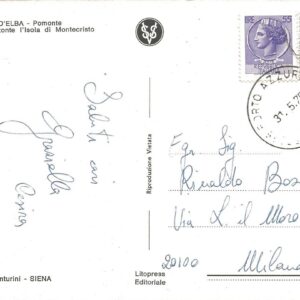 D'ELBA - Pomonte
zonte l'Isola di Montecristo
Saluti cari
Graziella
Cesira
Riproduzione Vietata
PORTO AZZUR
31.5.7
Egr Sig.
Rinaldo Bos
Via L. il Moro
20100 Milano
nturini - SIENA
Litopress
Editoriale